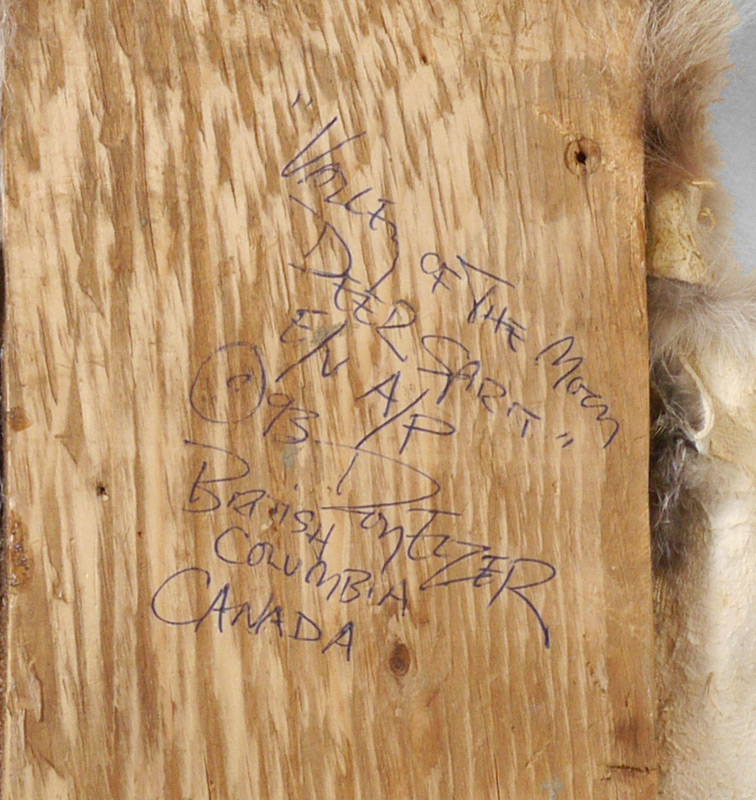 "VALLEY OF THE MOON
DEER SPIRIT"
E/V A/P
© 93 Don ELZER
BRITISH
COLUMBIA
CANADA